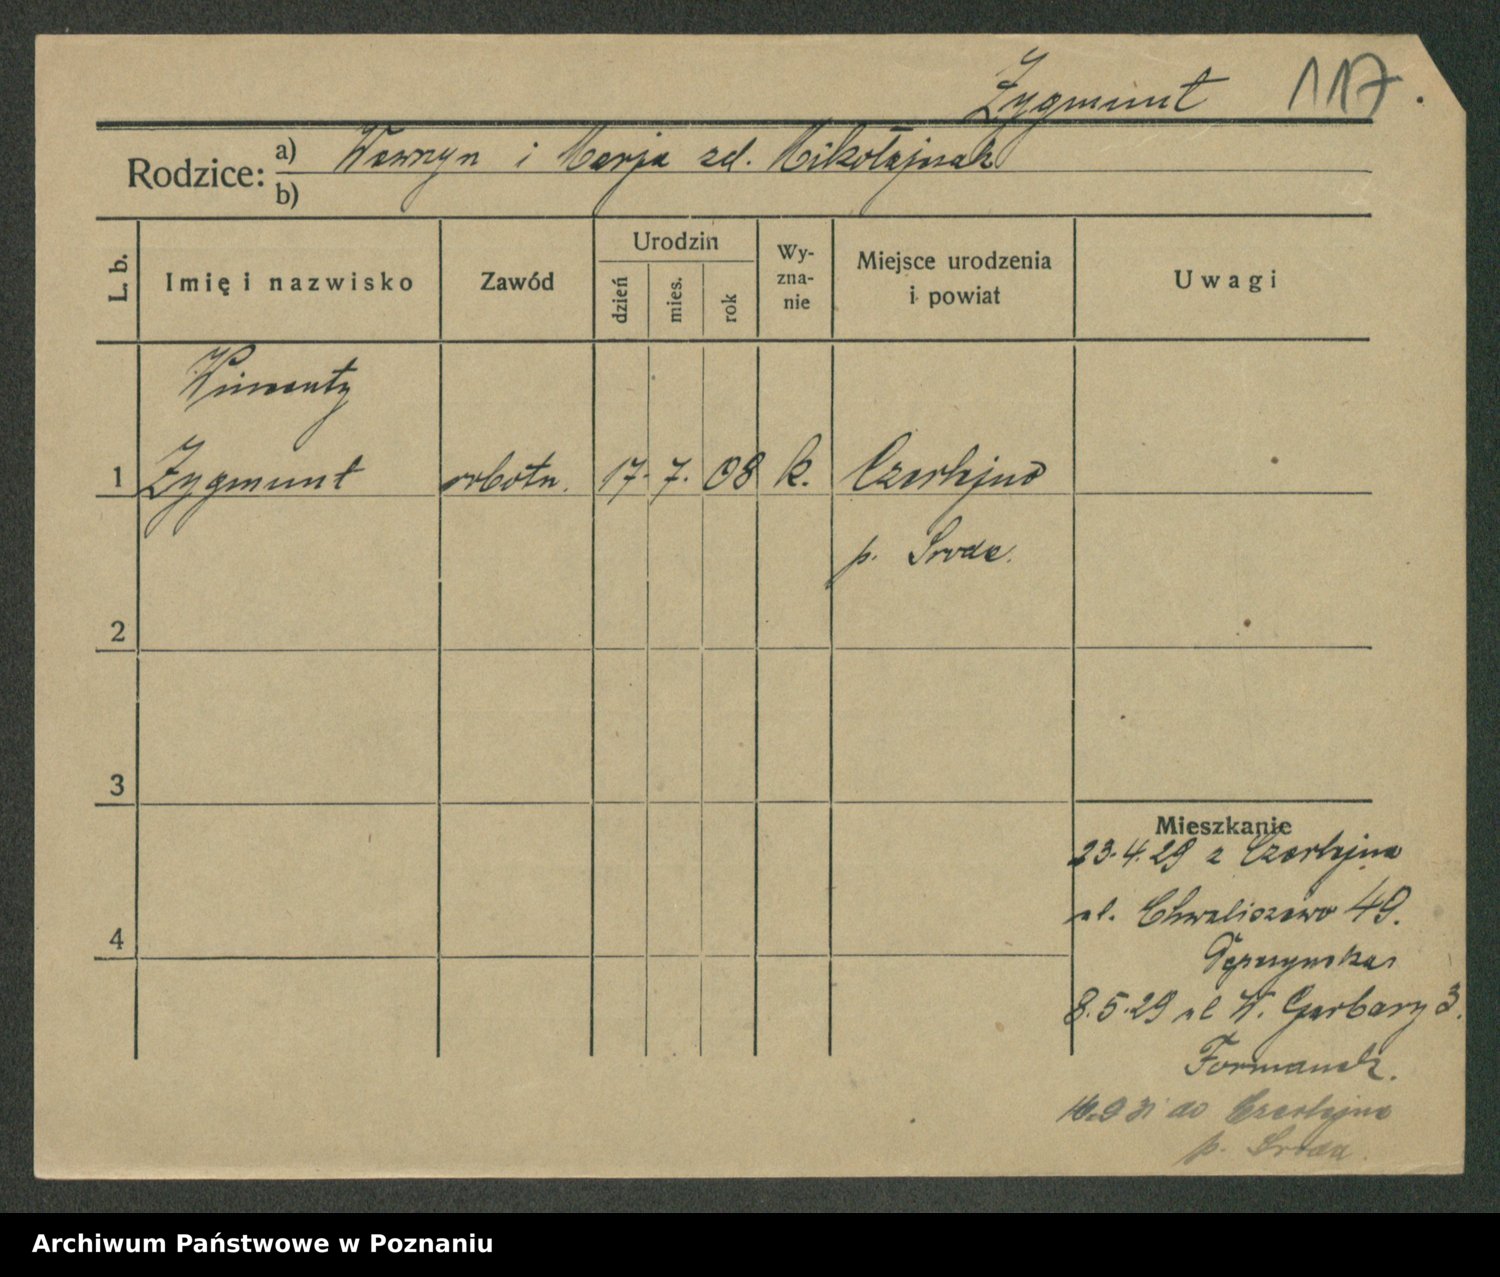 Zygmunt 117.
Rodzice: a) Wawrzyn i Marja zd. Mikołajczak
b)
L. b. Imię i nazwisko Zawód Urodzin dzień mies. rok Wy-zna-nie Miejsce urodzenia i powiat Uwagi
Wincenty
1 Zygmunt robotn. 17. 7. 08 k. Czerlejno
p. Środa.
2
3
Mieszkanie
23.4.29 z Czerlejna
ul. Chwaliszewo 49.
4
8.5.29 ul W. Garbary 3.
Formanek.
do Czerlejna
p. Środa.
Archiwum Państwowe w Poznaniu